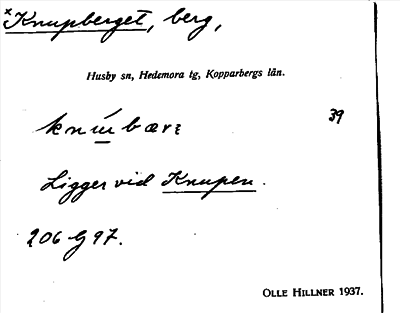 *Knupberget, berg,
Husby sn, Hedemora tg, Kopparbergs län.
39
Ligger vid Knupen.
206 G 97.
OLLE HILLNER 1937.